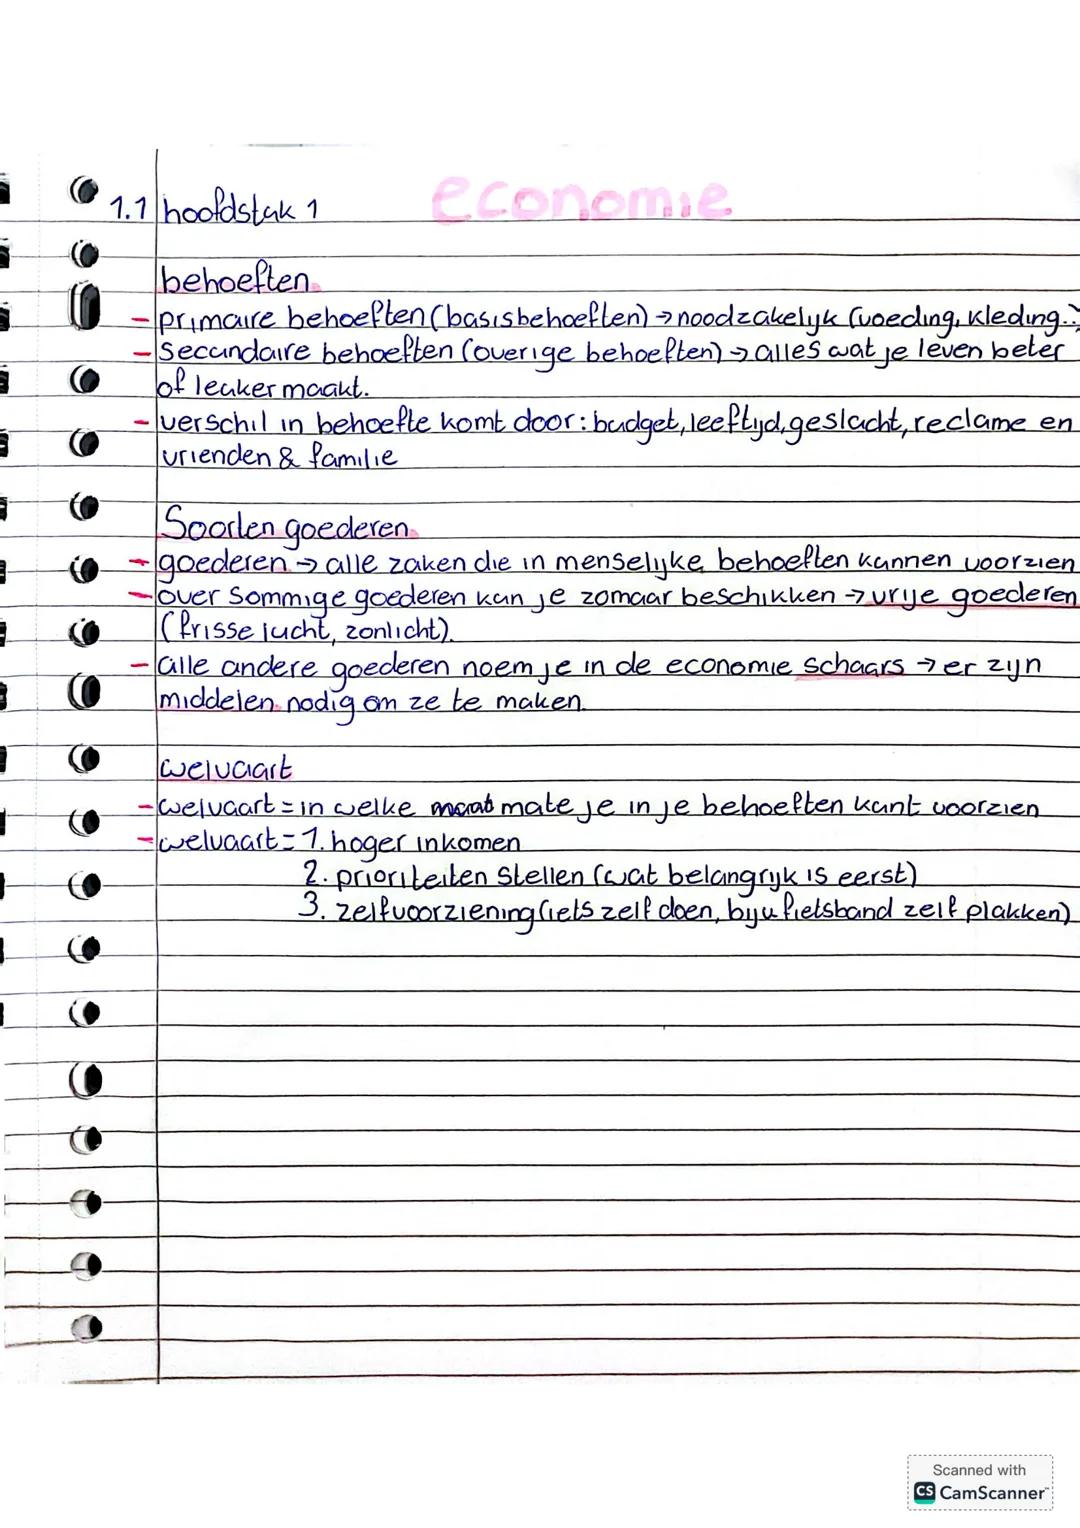 economie
1.1 hoofdstuk 1
behoeften
- primaire behoeften (basisbehoeften) → noodzakelijk (voeding, kleding..)
- Secundaire behoeften (overige behoeften) → alles wat je leven beter
of leuker maakt.
- verschil in behoefte komt door: budget, leeftijd, geslacht, reclame en
vrienden & familie
Soorten goederen
- goederen → alle zaken die in menselijke behoeften kunnen voorzien
- over Sommige goederen kun je zomaar beschikken → vrije goederen
(frisse lucht, zonlicht).
- alle andere goederen noem je in de economie schaars → er zijn
middelen nodig om ze te maken.
welvaart
- welvaart = in welke maat mate je in je behoeften kunt voorzien
- welvaart = 1. hoger inkomen
2. prioriteiten Stellen (wat belangrijk is eerst)
3. zelfvoorziening (iets zelf doen, bijv fietsband zelf plakken)
Scanned with
CS CamScanner